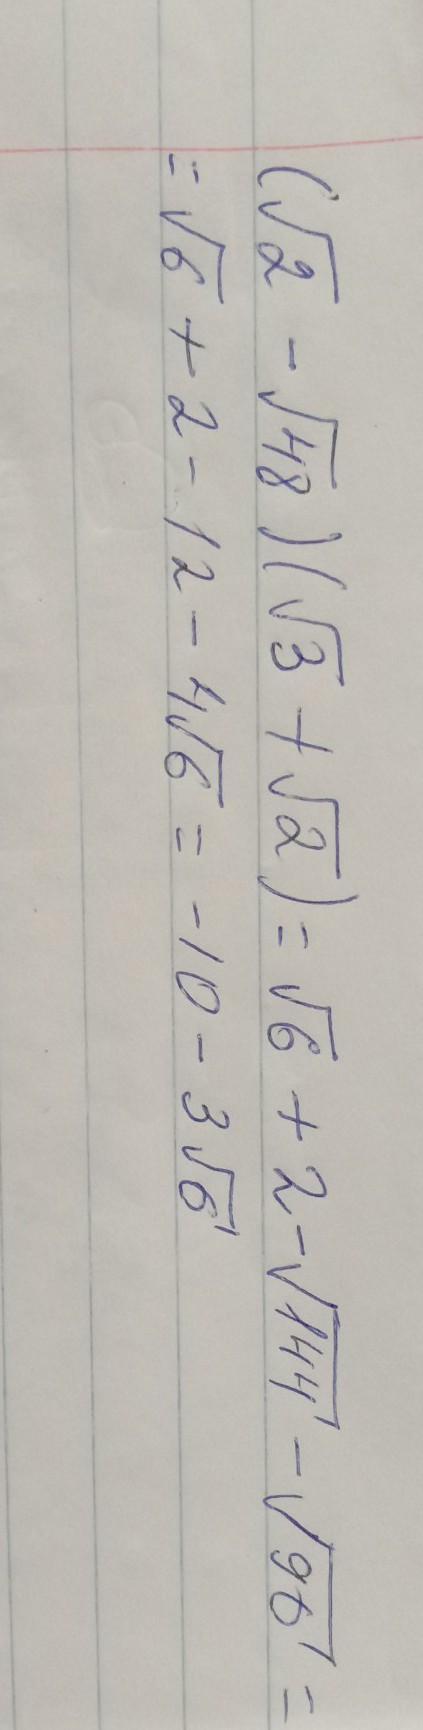 (√2 - √48)(√3 + √2) = √6 + 2 - √144 - √96 =
= √6 + 2 - 12 - 4√6 = -10 - 3√6